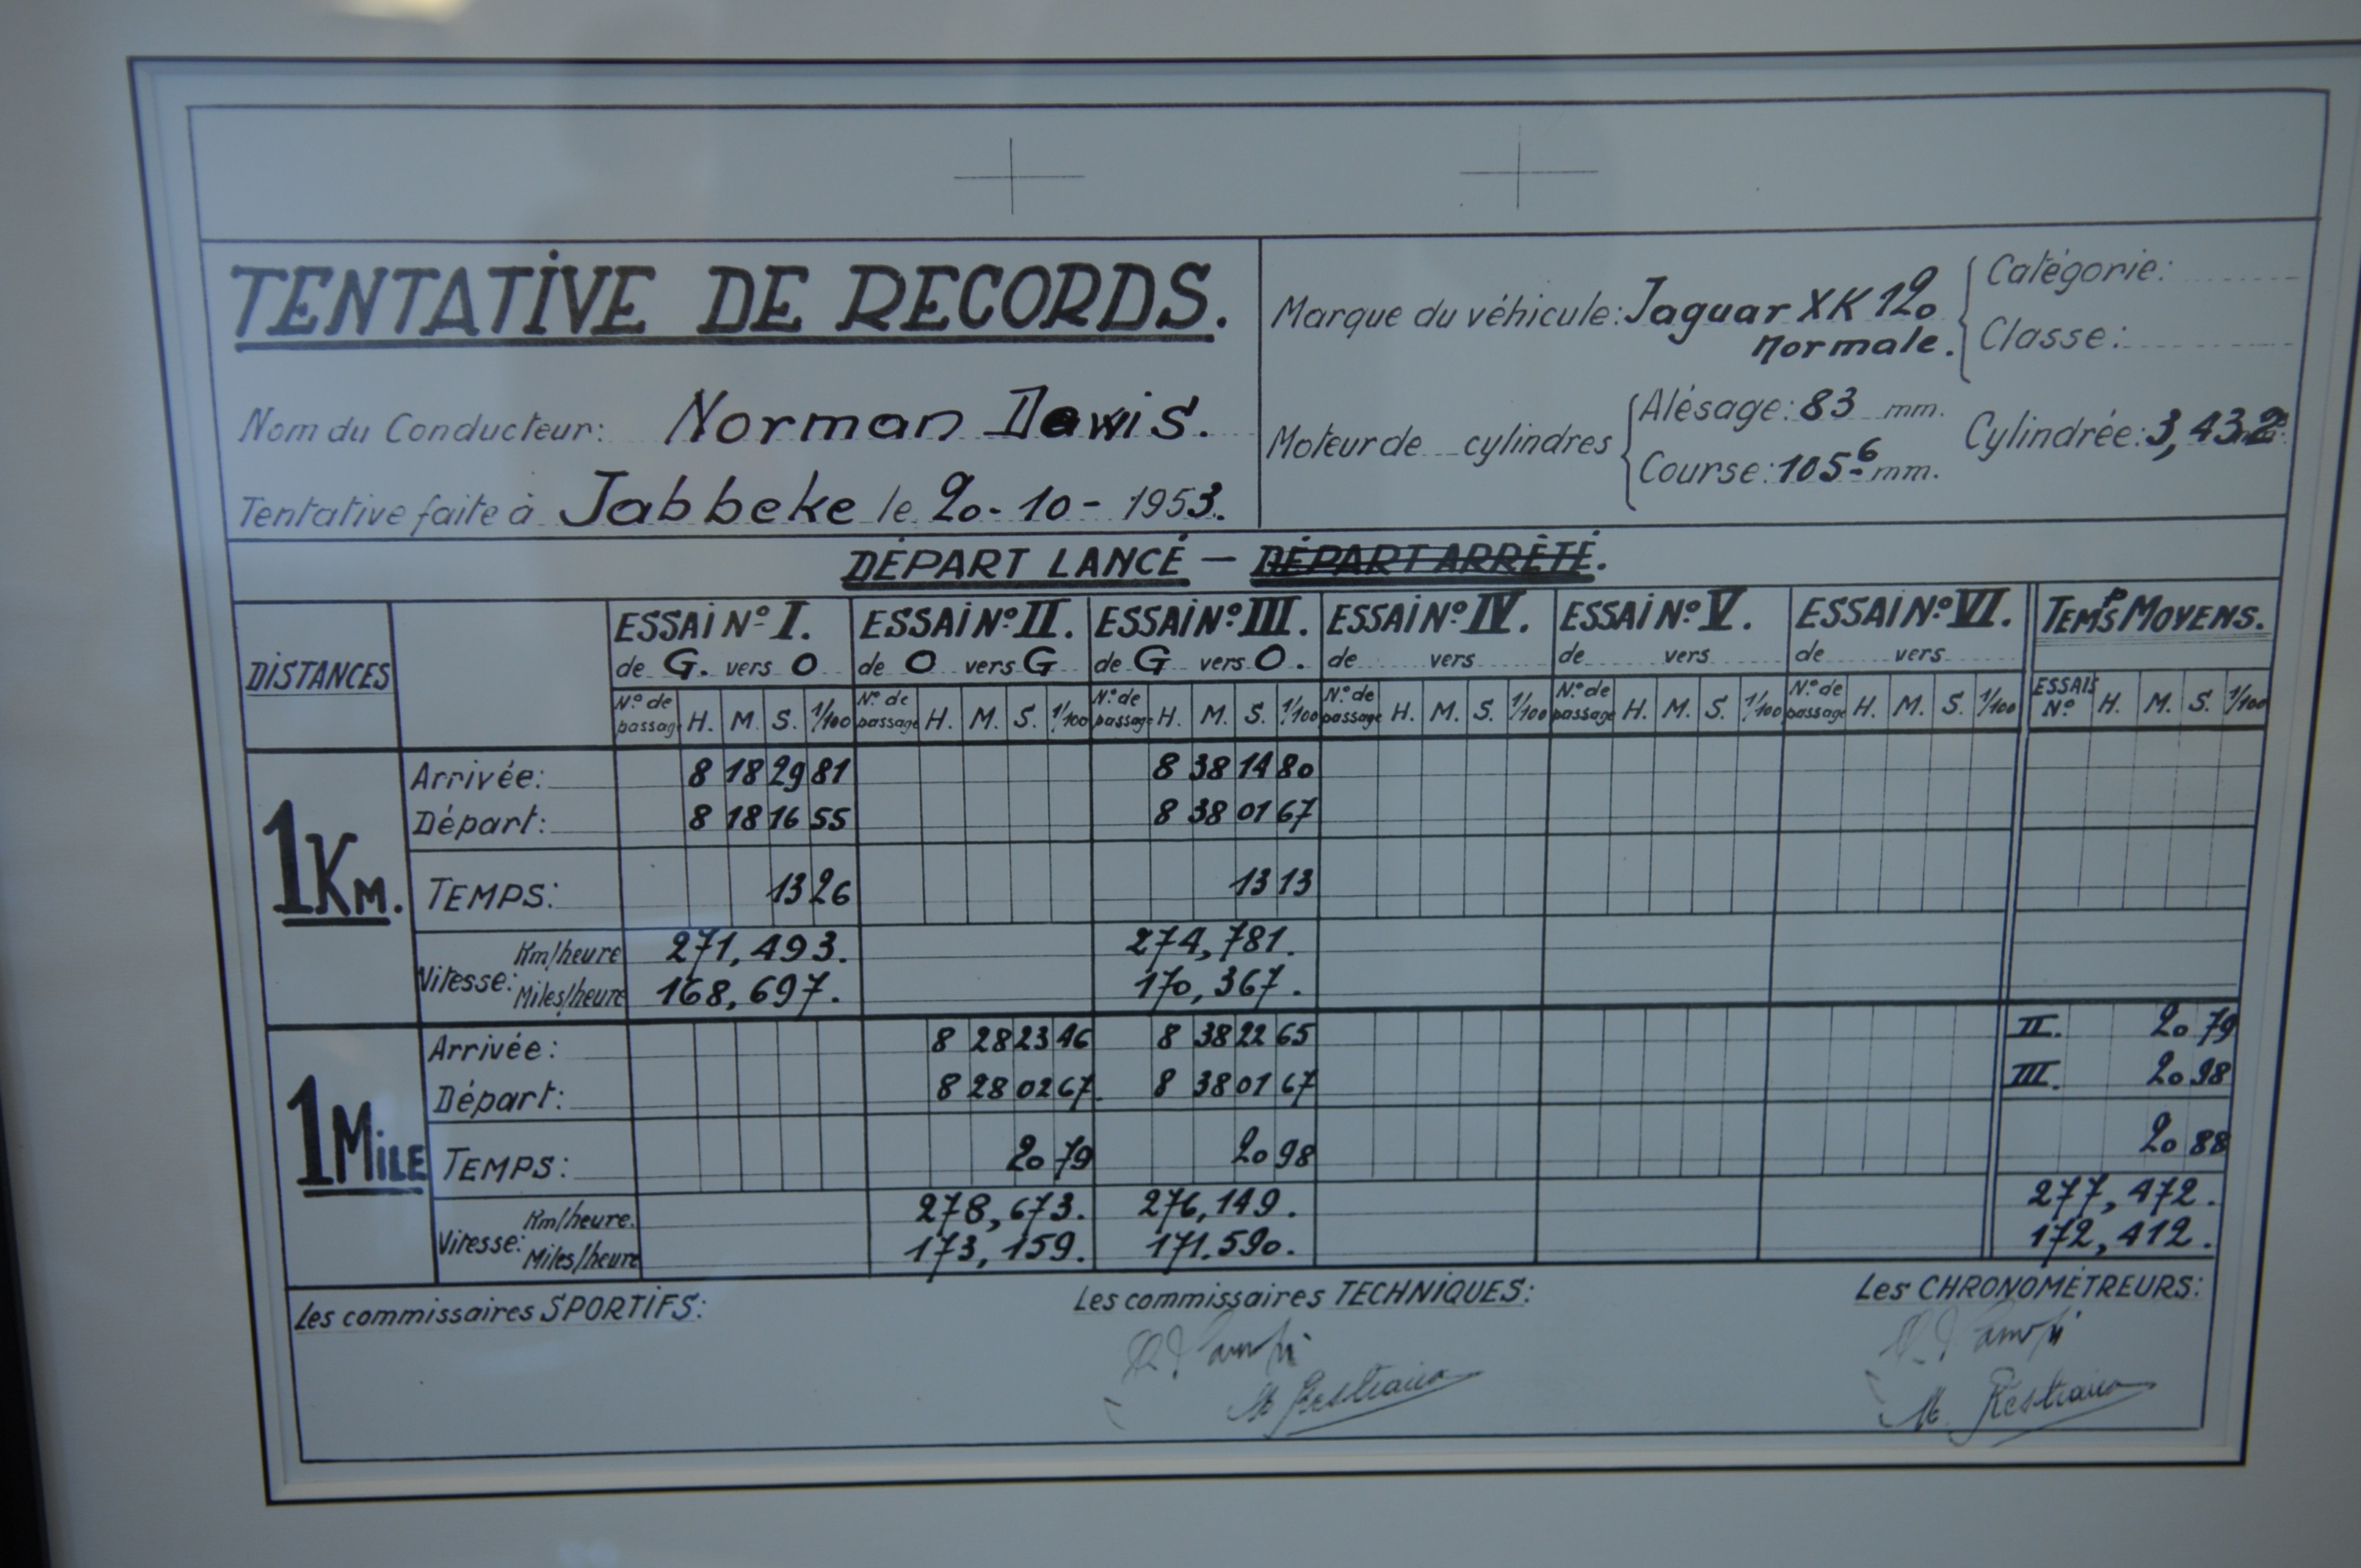 TENTATIVE DE RECORDS.
Nom du Conducteur: Norman Dewis.
Tentative faite à Jabbeke le 20-10-1953.
Marque du véhicule: Jaguar XK 120
normale.
Catégorie:
Classe:
Moteur de cylindres
Alésage: 83 mm.
Course: 105-6 mm.
Cylindrée: 3,432
DÉPART LANCÉ - DÉPART ARRÊTÉ.
DISTANCES
ESSAI Nº I. ESSAI Nº II. ESSAI Nº III. ESSAI Nº IV. ESSAI Nº V. ESSAI Nº VI. TEMPS MOYENS.
de G. vers O de O vers G de G vers O. de vers de vers de vers
Nº de passage H. M. S. 1/100 Nº de passage H. M. S. 1/100 Nº de passage H. M. S. 1/100 Nº de passage H. M. S. 1/100 Nº de passage H. M. S. 1/100 Nº de passage H. M. S. 1/100 ESSAIS Nº H. M. S. 1/100
1 KM.
Arrivée: 8 18 29 81 8 38 14 80
Départ: 8 18 16 55 8 38 01 67
TEMPS: 13 26 13 13
Vitesse: Km/heure 271,493. 274,781.
Miles/heure 168,697. 170,367.
1 MILE
Arrivée: 8 28 23 46 8 38 22 65 II. 20 79
Départ: 8 28 02 67 8 38 01 67 III. 20 98
TEMPS: 20 79 20 98 20 88
Vitesse: Km/heure. 278,673. 276,149. 277,472.
Miles/heure 173,159. 171.590. 172,412.
Les commissaires SPORTIFS:
Les commissaires TECHNIQUES:
Les CHRONOMÉTREURS: